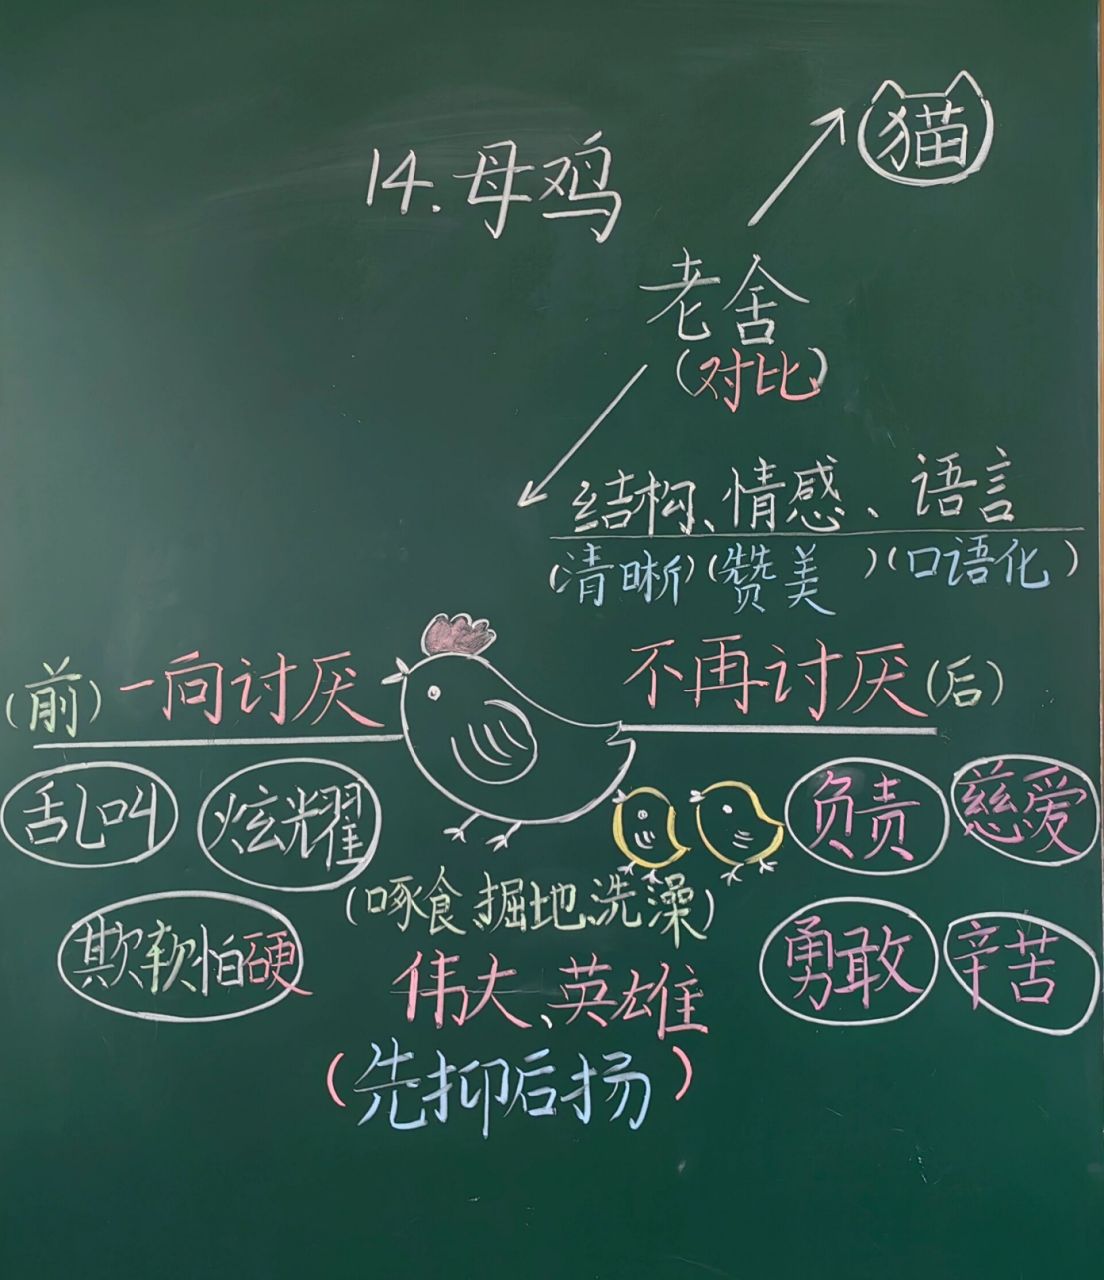 猫
14.母鸡
老舍
(对比)
结构、情感、语言
(清晰)(赞美)(口语化)
(前)一向讨厌 不再讨厌(后)
乱叫 炫耀 负责 慈爱
(啄食 掘地 洗澡)
欺软怕硬 勇敢 辛苦
伟大、英雄
(先抑后扬)